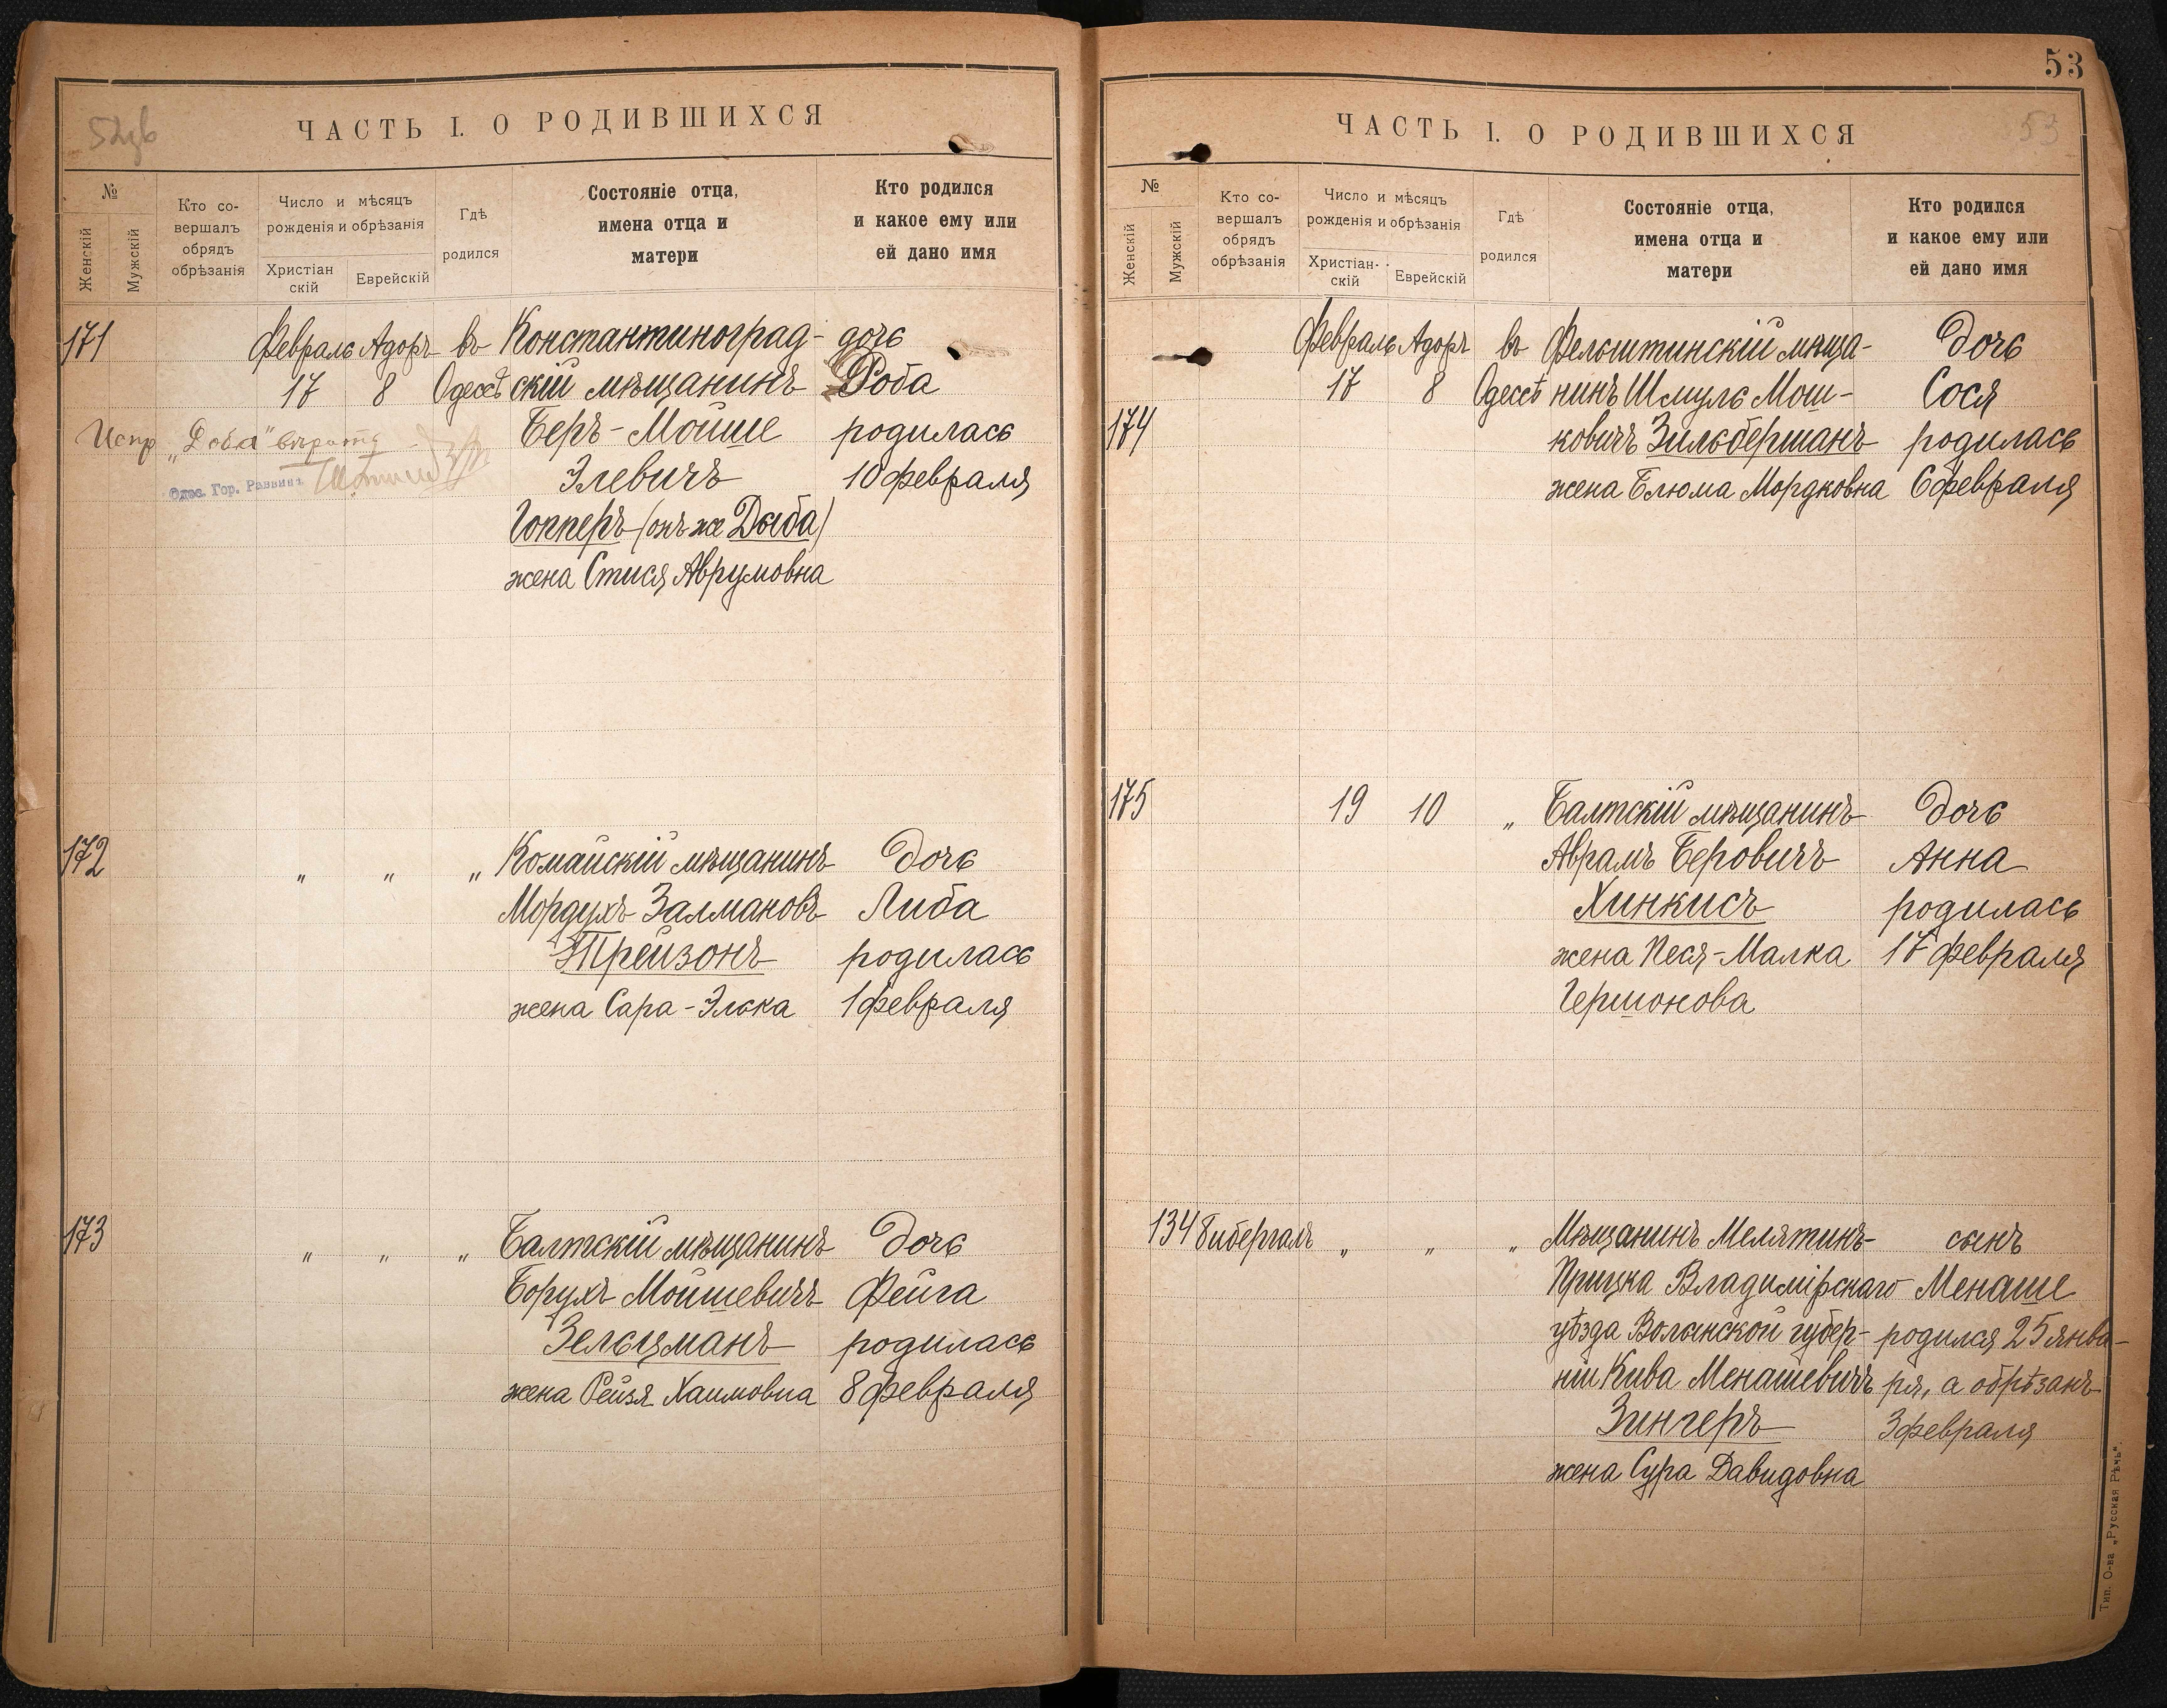 52об
ЧАСТЬ I. О РОДИВШИХСЯ
№
Женскій
Мужскій
Кто со-
вершалъ
обрядъ
обрѣзанія
Число и мѣсяцъ
рожденія и обрѣзанія
Христіан
скій
Еврейскій
Гдѣ
родился
Состояніе отца,
имена отца и
матери
Кто родился
и какое ему или
ей дано имя
171
Февраль Адоръ въ Константиноград- дочь
17 8 Одессѣ скій мѣщанинъ Доба
Беръ-Мойше родилась
Испр „Доба" вѣрить
Элевичъ 10 февраля
Одес. Гор. Раввинъ
Гопперъ (онъ же Дыба)
жена Стися Аврумовна
172 „ „ „ Комайскій мѣщанинъ дочь
Мордухъ Залмановъ Либа
Трейзонъ родилась
жена Сара-Элька 1 февраля
173 „ „ „ Балтскій мѣщанинъ дочь
Борухъ Мойшевичъ Фейга
Зельцманъ родилась
жена Рейзя Хаимовна 8 февраля
53
53
ЧАСТЬ I. О РОДИВШИХСЯ
№
Женскій
Мужскій
Кто со-
вершалъ
обрядъ
обрѣзанія
Число и мѣсяцъ
рожденія и обрѣзанія
Христіан-
скій
Еврейскій
Гдѣ
родился
Состояніе отца,
имена отца и
матери
Кто родился
и какое ему или
ей дано имя
Февраль Адоръ въ Фельштинскій мѣща- дочь
17 8 Одессѣ нинъ Шмуль Мош- Сося
174 ковичъ Зильберманъ родилась
жена Блюма Мордковна 6 февраля
175 19 10 „ Балтскій мѣщанинъ дочь
Аврамъ Беровичъ Анна
Хинкисъ родилась
жена Песя-Малка 17 февраля
Гершонова
134 Бибергалъ „ „ „ Мѣщанинъ Мелятинъ- сынъ
Прицка Владимірскаго Менаше
уѣзда Волынской губер- родился 25 янва-
ніи Кива Менашевичъ ря, а обрѣзанъ
Зингеръ 3 февраля
жена Сура Давидовна
Тип. О-ва „Русская Рѣчь".